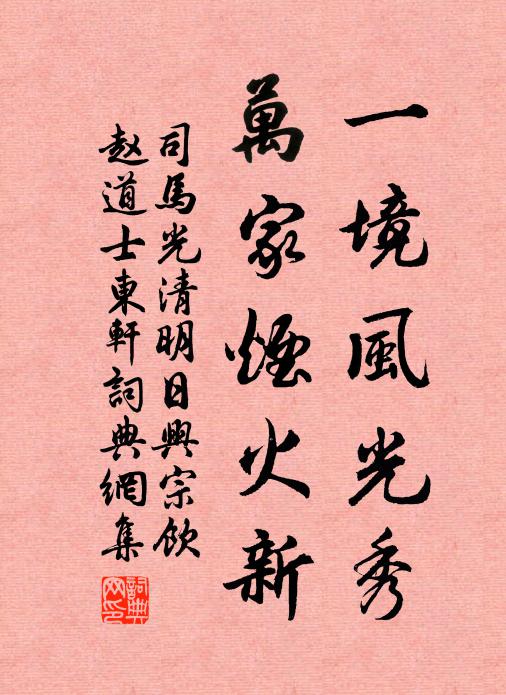 一境風光秀
萬家煙火新
司馬光清明日興宗飲
赵道士東軒詞典網集
詞典网印